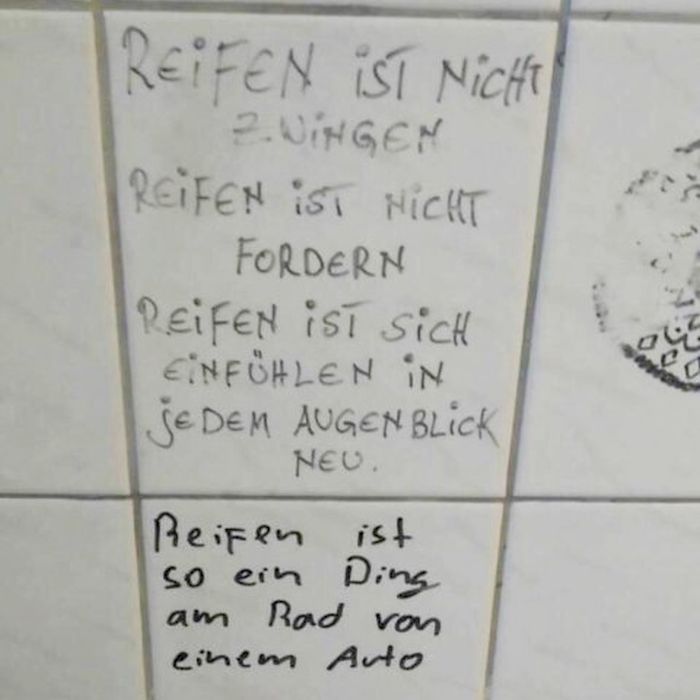 REIFEN IST NICHT
ZWINGEN
REIFEN IST NICHT
FORDERN
REIFEN IST SICH
EINFÜHLEN IN
JEDEM AUGENBLICK
NEU.
Reifen ist
so ein Ding
am Rad von
einem Auto